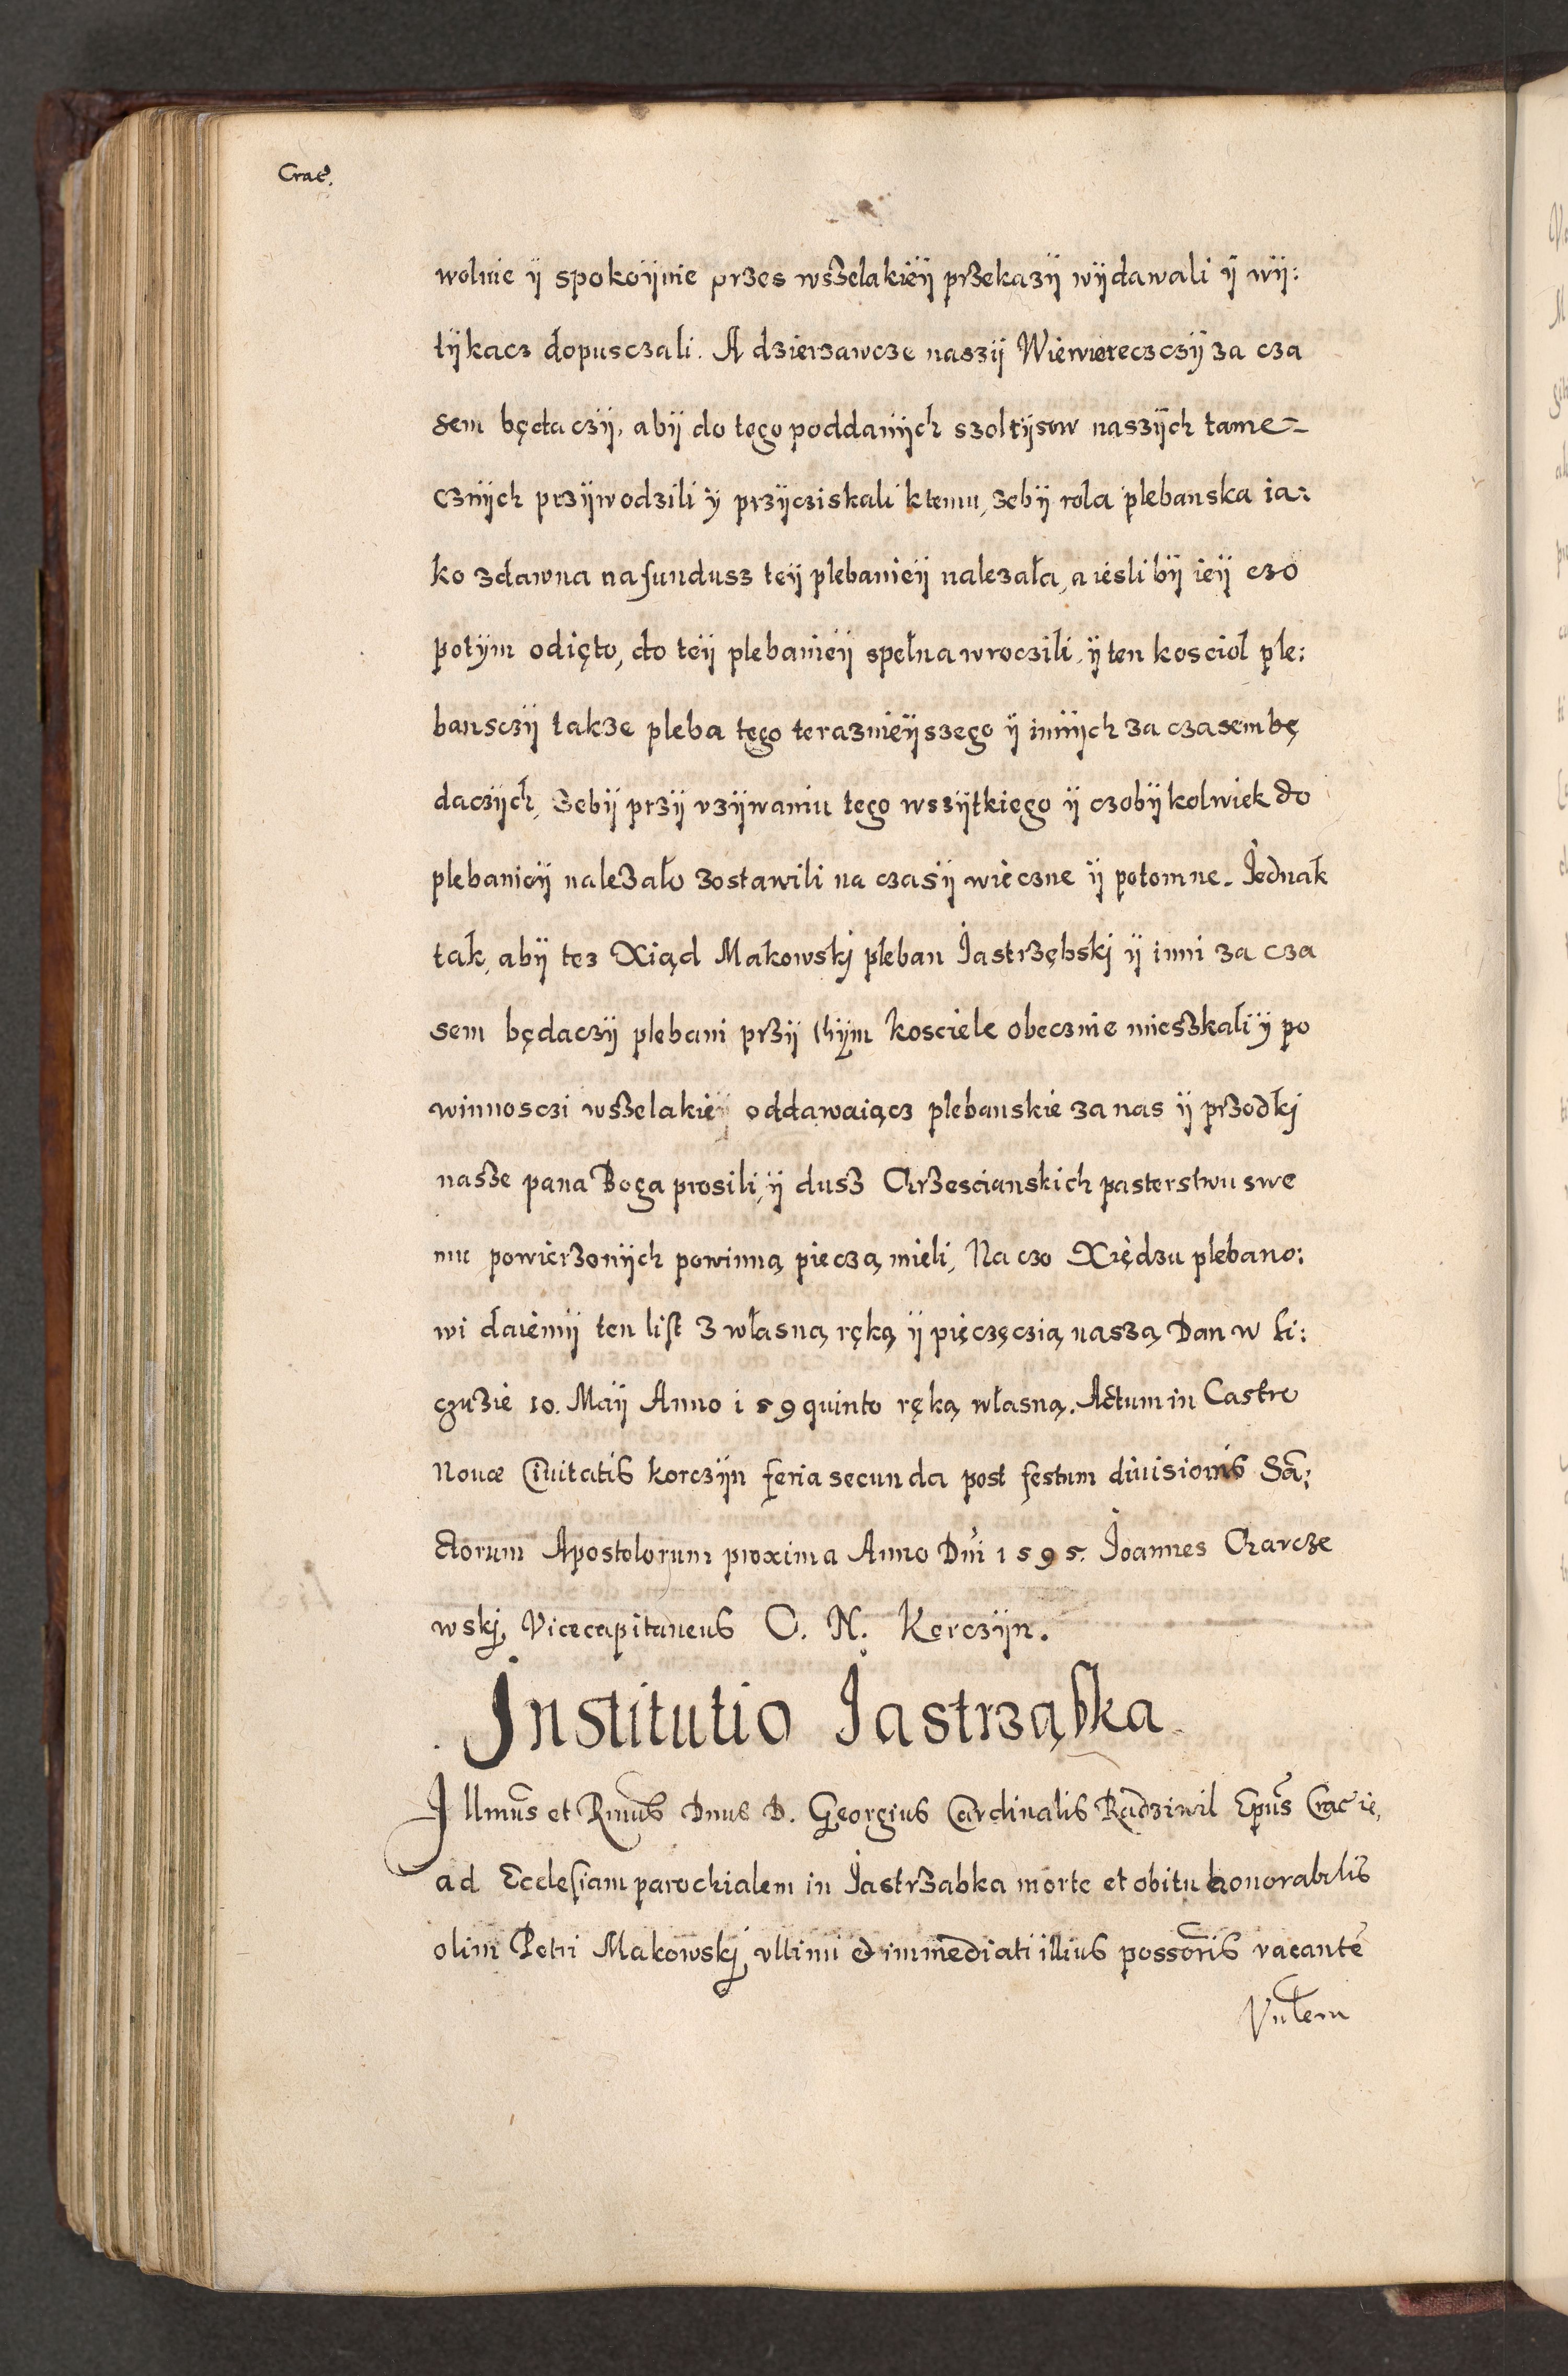 Crac.
wolnie ÿ spokoÿnie przes wszelakieÿ przekazÿ wÿdawali ÿ wÿ:
tÿkacz dopusczali. A dzierzawcze naszÿ Wiewiereczczÿ za cza
sem będaczÿ, abÿ do tego poddanÿch szoltÿsow naszÿch tame=
cznÿch przÿwodzili ÿ przÿcziskali ktemu, zebÿ rola plebanska ia:
ko zdawna na fundusz teÿ plebanieÿ nalezała, a iesli bÿ ieÿ czo
potÿm odięto, do teÿ plebanieÿ spełna wroczili, ÿ ten kosciol ple:
bansczÿ takze pleba tego teraznieÿszego ÿ innÿch za czasem bę
daczÿch, zebÿ przÿ vzÿwaniu tego wszÿtkiego ÿ czobÿkolwiek do
plebanieÿ nalezało zostawili na czasÿ wieczne ÿ potomne. Jednak
tak, abÿ tez Xiąd Makowskj pleban Jastrzębskj ÿ inni za cza
sem będaczÿ plebani przÿ thÿm kosciele obecznie mieszkali ÿ po
winnosczi wszelakieÿ oddawaiącz plebanskie za nas ÿ przodkj
nasze pana Boga prosili, ÿ dusz Chrzescianskich pasterstwu swe
mu powierzonÿch powinną pieczą mieli, Na czo Xiędzu plebano:
wi daiemÿ ten list z własną ręką ÿ pięczęczią naszą Dan w Li:
czuzie 10. Maÿ Anno i 59 quinto ręką własną. Actum in Castro
Nouæ Ciuitatis korczÿn feria secunda post festum diuisionis Sã:
ctorum Apostolorum proxima Anno Dñi 1595. Joannes Charcze
wskj Vicecapitaneus C. N. Korczÿn.
Institutio Jastrząbka
Illmus et Rmus Dnus D. Georgius Cardinalis Radziwil Epus Craciē,
ad Ecclesiam parochialem in Jastrzabka morte et obitu honorabilis
olim Petri Makowskj vltimi et immediati illius possoris vacante